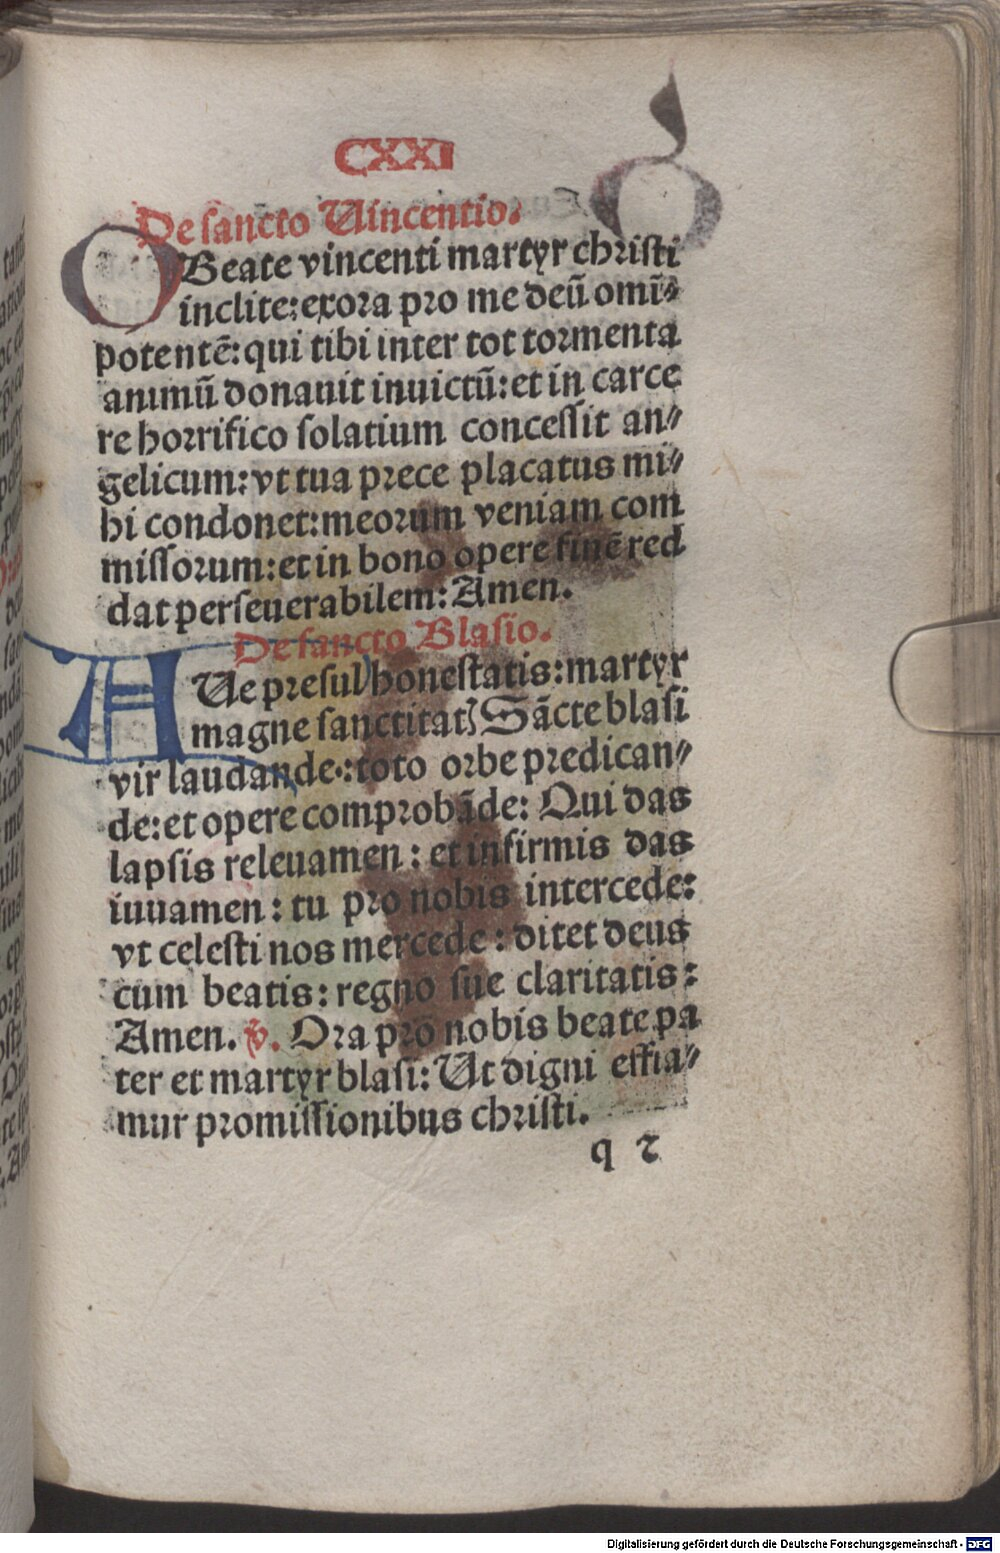 CXXI
De sancto Uincentio.
O Beate vincenti martyr christi
inclite: exora pro me deū omī⸗
potentē: qui tibi inter tot tormenta
animū donauit inuictū: et in carce
re horrifico solatium concessit an⸗
gelicum: vt tua prece placatus mi⸗
hi condonet: meorum veniam com
missorum: et in bono opere finē red
dat perseuerabilem: Amen.
De sancto Blasio.
AUe presul honestatis: martyr
magne sanctitatꝭ Sācte blasi
vir laudande: toto orbe predican⸗
de: et opere comprobāde: Qui das
lapsis releuamen: et infirmis das
iuuamen: tu pro nobis intercede:
vt celesti nos mercede: ditet deus
cum beatis: regno sue claritatis:
Amen. ℣. Ora prō nobis beate pa
ter et martyr blasi: Ut digni effia⸗
mur promissionibus christi.
q 2
Digitalisierung gefördert durch die Deutsche Forschungsgemeinschaft - DFG